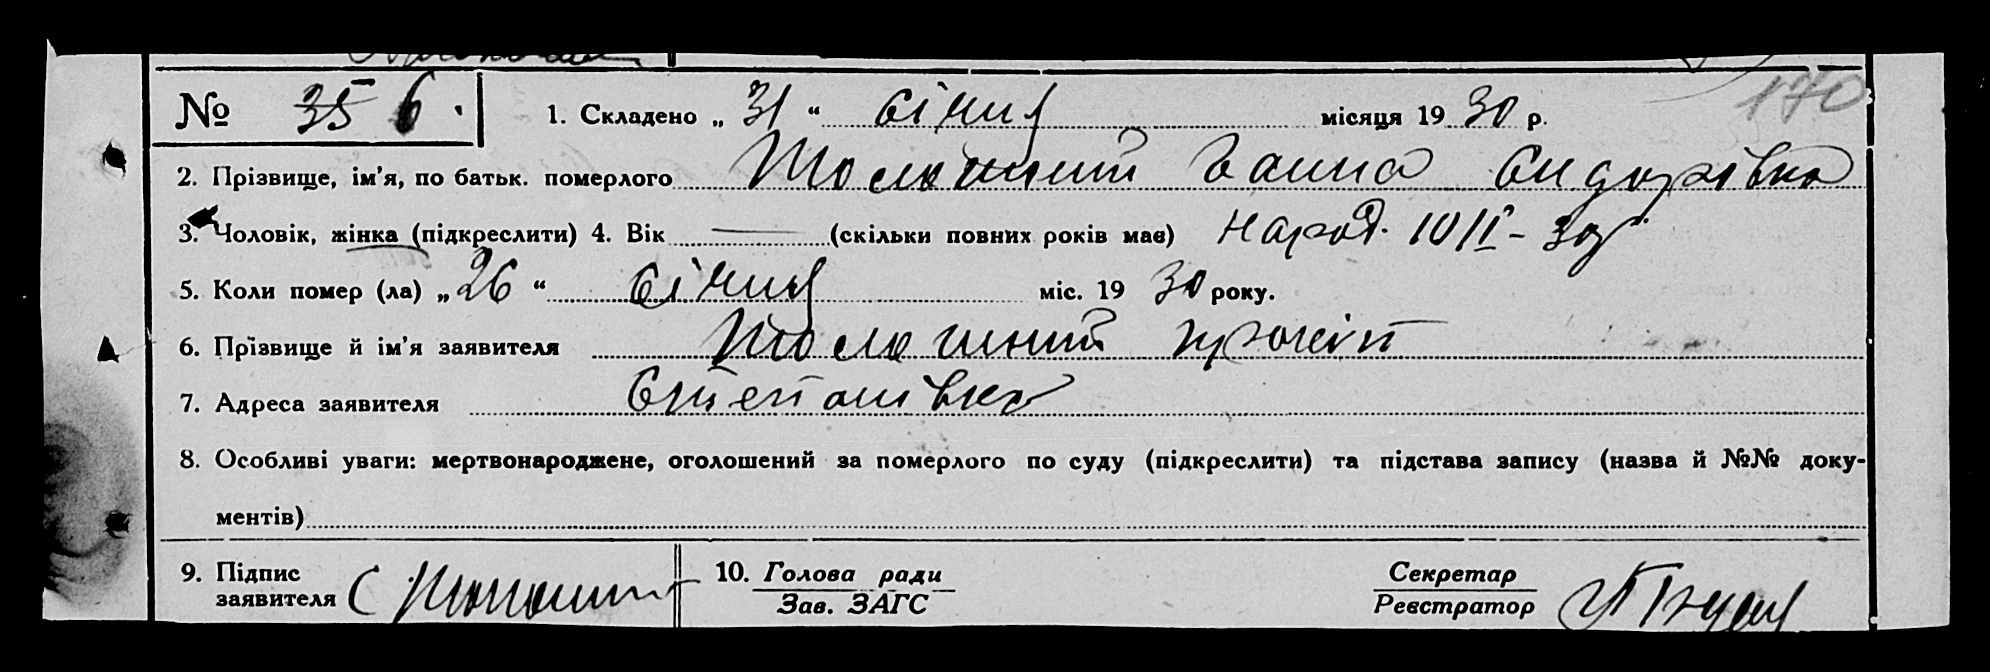 170
№ 35 6. 1. Складено „ 31 “ січня місяця 19 30 р.
2. Прізвище, ім’я, по батьк. померлого Ганна Сидорівна
3. Чоловік, жінка (підкреслити) 4. Вік — (скільки повних років має) народ. 10/I - 30 р.
5. Коли помер (ла) „ 26 “ січня міс. 19 30 року.
6. Прізвище й ім’я заявителя
7. Адреса заявителя Степанівка
8. Особливі уваги: мертвонароджене, оголошений за померлого по суду (підкреслити) та підстава запису (назва й №№ доку-
ментів)
9. Підпис 10. Голова ради Секретар
заявителя Зав. ЗАГС Реєстратор